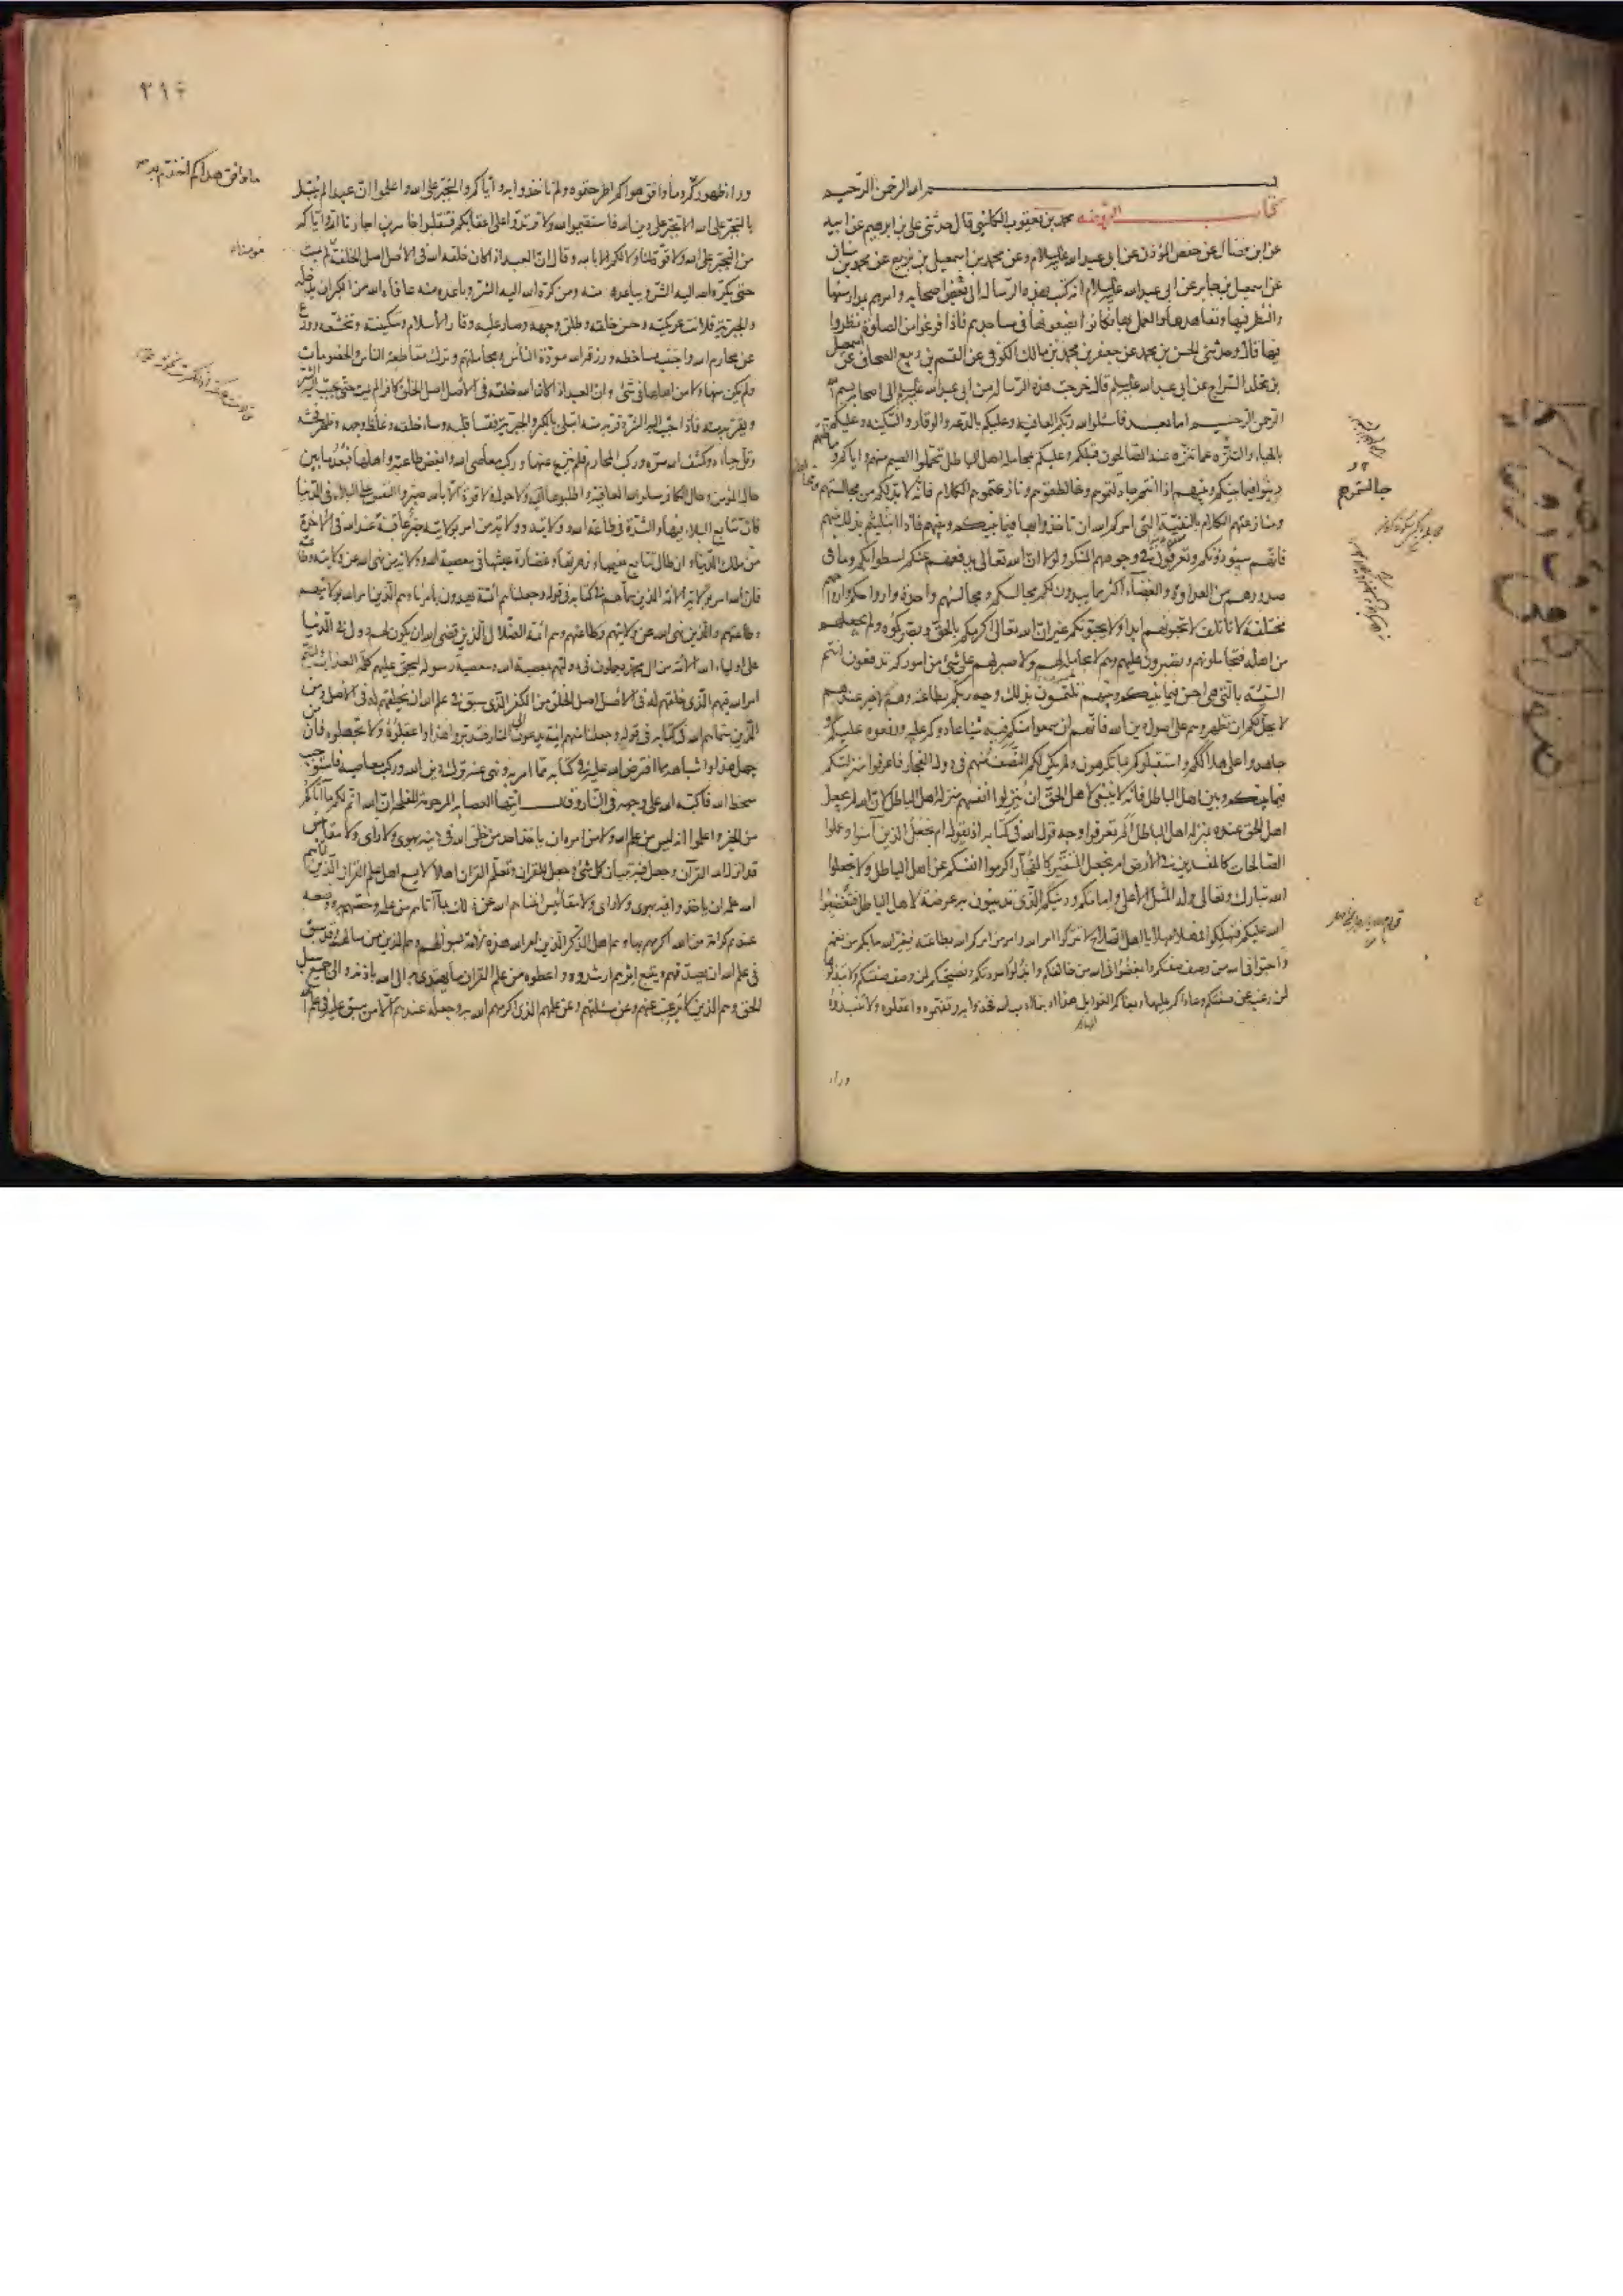 بسم الله الرحمن الرحيم
كتاب الروضه محمد بن يعقوب الكليني قال حدثني علي بن ابرهيم عن ابيه
عن ابن فضال عن حفص المؤذن عن ابي عبد الله عليه السلام وعن محمد بن اسمعيل بن بزيع عن محمد بن سنان
عن اسمعيل بن جابر عن ابي عبد الله عليه السلام انه كتب بهذه الرسالة الى بعض اصحابه وامرهم بمدارستها
والنظر فيها وتعاهدها والعمل بها فكانوا يضعونها في مساجد بيوتهم فاذا فرغوا من الصلوة نظروا
فيها قال وحدثني الحسن بن محمد عن جعفر بن محمد بن مالك الكوفي عن القسم بن ربيع الصحاف عن اسمعيل
بن مخلد السراج عن ابي عبد الله عليه السلم قال خرجت هذه الرسالة من ابي عبد الله عليه السلم الى اصحابه بسم الله
الرحمن الرحيم اما بعد فاسئلوا الله ربكم العافية وعليكم بالدعة والوقار والسكينة وعليكم
بالحياء والتنزه عما تنزه عنه الصالحون قبلكم وعليكم بمجاملة اهل الباطل تحملوا الضيم منهم واياكم ومماظتهم
دينوا فيما بينكم وبينهم اذا انتم جالستموهم وخالطتموهم ونازعتموهم الكلام فانه لا بد لكم من مجالستهم
ومنازعتهم الكلام بالتقية التي امركم الله ان تأخذوا بها فيما بينكم وبينهم فاذا ابتليتم بذلك منهم
فانهم سيؤذونكم وتعرفون في وجوههم المنكر ولولا ان الله تعالى يدفعهم عنكم لسطوا بكم وما في
صدورهم من العداوة والبغضاء اكثر مما يبدون لكم مجالسكم ومجالسهم واحدة وارواحكم وارواحهم
مختلفة لا تأتلف لا تحبونهم ابدا ولا يحبونكم غير ان الله تعالى اكرمكم بالحق وبصركموه ولم يجعلهم
من اهله فتجاملونهم وتصبرون عليهم وهم لا مجاملة لهم ولا صبر لهم على شئ من اموركم تدفعون انتم
السيئة بالتي هي احسن فيما بينكم وبينهم تلتمسون بذلك وجه ربكم بطاعته وهم لا خير عندهم
لا يحل لكم ان تظهروهم على اصول دين الله فانهم ان سمعوا منكم فيه شيئا عادوكم عليه ورفعوه عليكم
وجاهدوا على هلاككم واستقبلوكم بما تكرهون ولم يكن لكم النصف منهم في دول الفجار فاعرفوا منزلتكم
فيما بينكم وبين اهل الباطل فانه لا ينبغي لاهل الحق ان ينزلوا انفسهم منزلة اهل الباطل لان الله لم يجعل
اهل الحق عنده بمنزلة اهل الباطل الم تعرفوا وجه قول الله في كتابه اذ يقول ام نجعل الذين آمنوا وعملوا
الصالحات كالمفسدين في الارض ام نجعل المتقين كالفجار اكرموا انفسكم عن اهل الباطل ولا تجعلوا
الله تبارك وتعالى وله المثل الاعلى وامامكم ودينكم الذي تدينون به عرضة لاهل الباطل فتغضبوا
الله عليكم فتهلكوا فمهلا مهلا يا اهل الصلاح لا تتركوا امر الله وامر من امركم الله بطاعته فيغير الله ما بكم من نعم
واحبوا في الله من وصف صفتكم وابغضوا في الله من خالفكم وابذلوا مودتكم ونصيحتكم لمن وصف صفتكم ولا تبذلوها
لمن رغب عن صفتكم وعاداكم عليها وبغاكم الغوايل هذا ادبنا ادب الله فخذوا به وتفهموه واعقلوه ولا تنبذوه
وراء
جالستموهم
٣١۴
وراء ظهوركم وما وافق هواكم اطرحتموه ولم تأخذوا به واياكم والتجبر على الله واعلموا ان عبدا لم يبتل
بالتجبر على الله الا تجبر على دين الله فاستقيموا لله ولا ترتدوا على اعقابكم فتنقلبوا خاسرين اجارنا الله واياكم
من التجبر على الله ولا قوة لنا ولا لكم الا بالله وقال ان العبد اذا كان خلقه الله في الاصل اصل الخلقة لم يمت
حتى يكره الله اليه الشر ويباعده منه ومن كره الله اليه الشر وباعده منه عافاه الله من الكبر ان يدخله
والجبرية فلانت عريكته وحسن خلقه وطلق وجهه وصار عليه وقار الاسلام وسكينته وتخشعه وورع
عن محارم الله واجتنب مساخطه ورزقه الله مودة الناس ومجاملتهم وترك مقاطعة الناس والخصومات
ولم يكن منها ولا من اهلها في شئ وان العبد اذا كان الله خلقه في الاصل اصل الخلق كافرا لم يمت حتى يحبب اليه الشر
ويقربه منه فاذا احب اليه الشر وقربه منه ابتلي بالكبر والجبرية فقسا قلبه وساء خلقه وغلظ وجهه وظهر فحشه
وقل حياءه وكشف الله ستره وركب المحارم فلم ينزع عنها وركب معاصي الله وابغض طاعته واهلها فبعد ما بين
حال المؤمن وحال الكافر سلوا الله العافية واطلبوها اليه ولا حول ولا قوة الا بالله صبروا النفس على البلاء في الدنيا
فان تتابع البلاء فيها والشدة في طاعة الله وولايته وولاية من امر بولايته خير عاقبة عند الله في الاخرة
من ملك الدنيا وان طال تتابع نعيمها وزهرتها وغضارة عيشها في معصية الله وولاية من نهى الله عن ولايته وطاعته
فان الله امر بولاية الائمة الذين سماهم في كتابه في قوله وجعلناهم ائمة يهدون بامرنا وهم الذين امر الله بولايتهم
وطاعتهم والذين نهى الله عن ولايتهم وطاعتهم وهم ائمة الضلال الذين قضى الله ان يكون لهم دول في الدنيا
على اولياء الله الائمة من ال محمد يعملون في دولتهم بمعصية الله ومعصية رسوله ليحق عليهم كلمة العذاب
الذين سماهم الله في كتابه في قوله وجعلنا منهم ائمة يدعون الى النار فتدبروا هذا واعقلوه ولا تجهلوه فان من
جهل هذا واشباهه مما افترض الله عليه في كتابه مما امر به ونهى عنه ترك دين الله وركب معاصيه فاستوجب
سخط الله فاكبه الله على وجهه في النار وقال ايتها العصابة المرحومة المفلحة ان الله اتم لكم ما آتاكم
من الخير واعلموا انه ليس من علم الله ولا من امره ان يأخذ احد من خلق الله في دينه بهوى ولا راي ولا مقائيس
قد انزل الله القرآن وجعل فيه تبيان كل شئ وجعل للقران وتعلم القران اهلا لا يسع اهل علم القران الذين آتاهم
الله علمه ان يأخذوا فيه بهوى ولا راي ولا مقائيس اغناهم الله عن ذلك بما آتاهم من علمه وخصهم به ووضعه
عندهم كرامة من الله اكرمهم بها وهم اهل الذكر الذين امر الله هذه الامة بسؤالهم وهم الذين من سالهم وقد سبق
في علم الله ان يصدقهم ويتبع اثرهم ارشدوه واعطوه من علم القران ما يهتدي به الى الله باذنه والى جميع سبل
الحق وهم الذين لا يرغب عنهم وعن مسئلتهم وعن علمهم الذي اكرمهم الله به وجعله عندهم الا من سبق عليه في علم الله
ما وافق هداكم اخذتم به